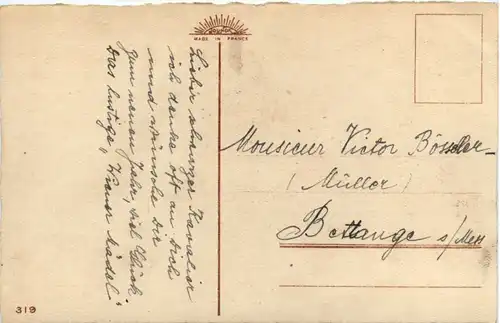 MADE IN FRANCE
Lieber schwarzer Kavalier
ich denke oft an Dich
und wünsche Dir
zum neuen Jahr, viel Glück.
Das lustige „Wiener Mädel“
Monsieur Victor Bössler
(Müller)
Bettange s/Mess
319